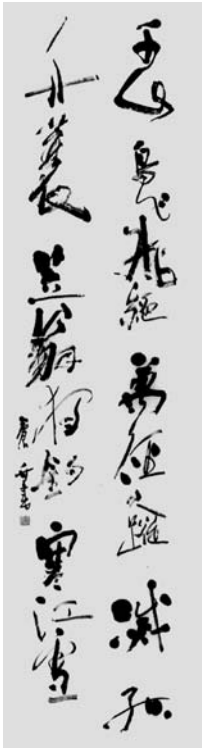 千山鳥飛絕萬徑人蹤滅孤
舟蓑笠翁獨釣寒江雪